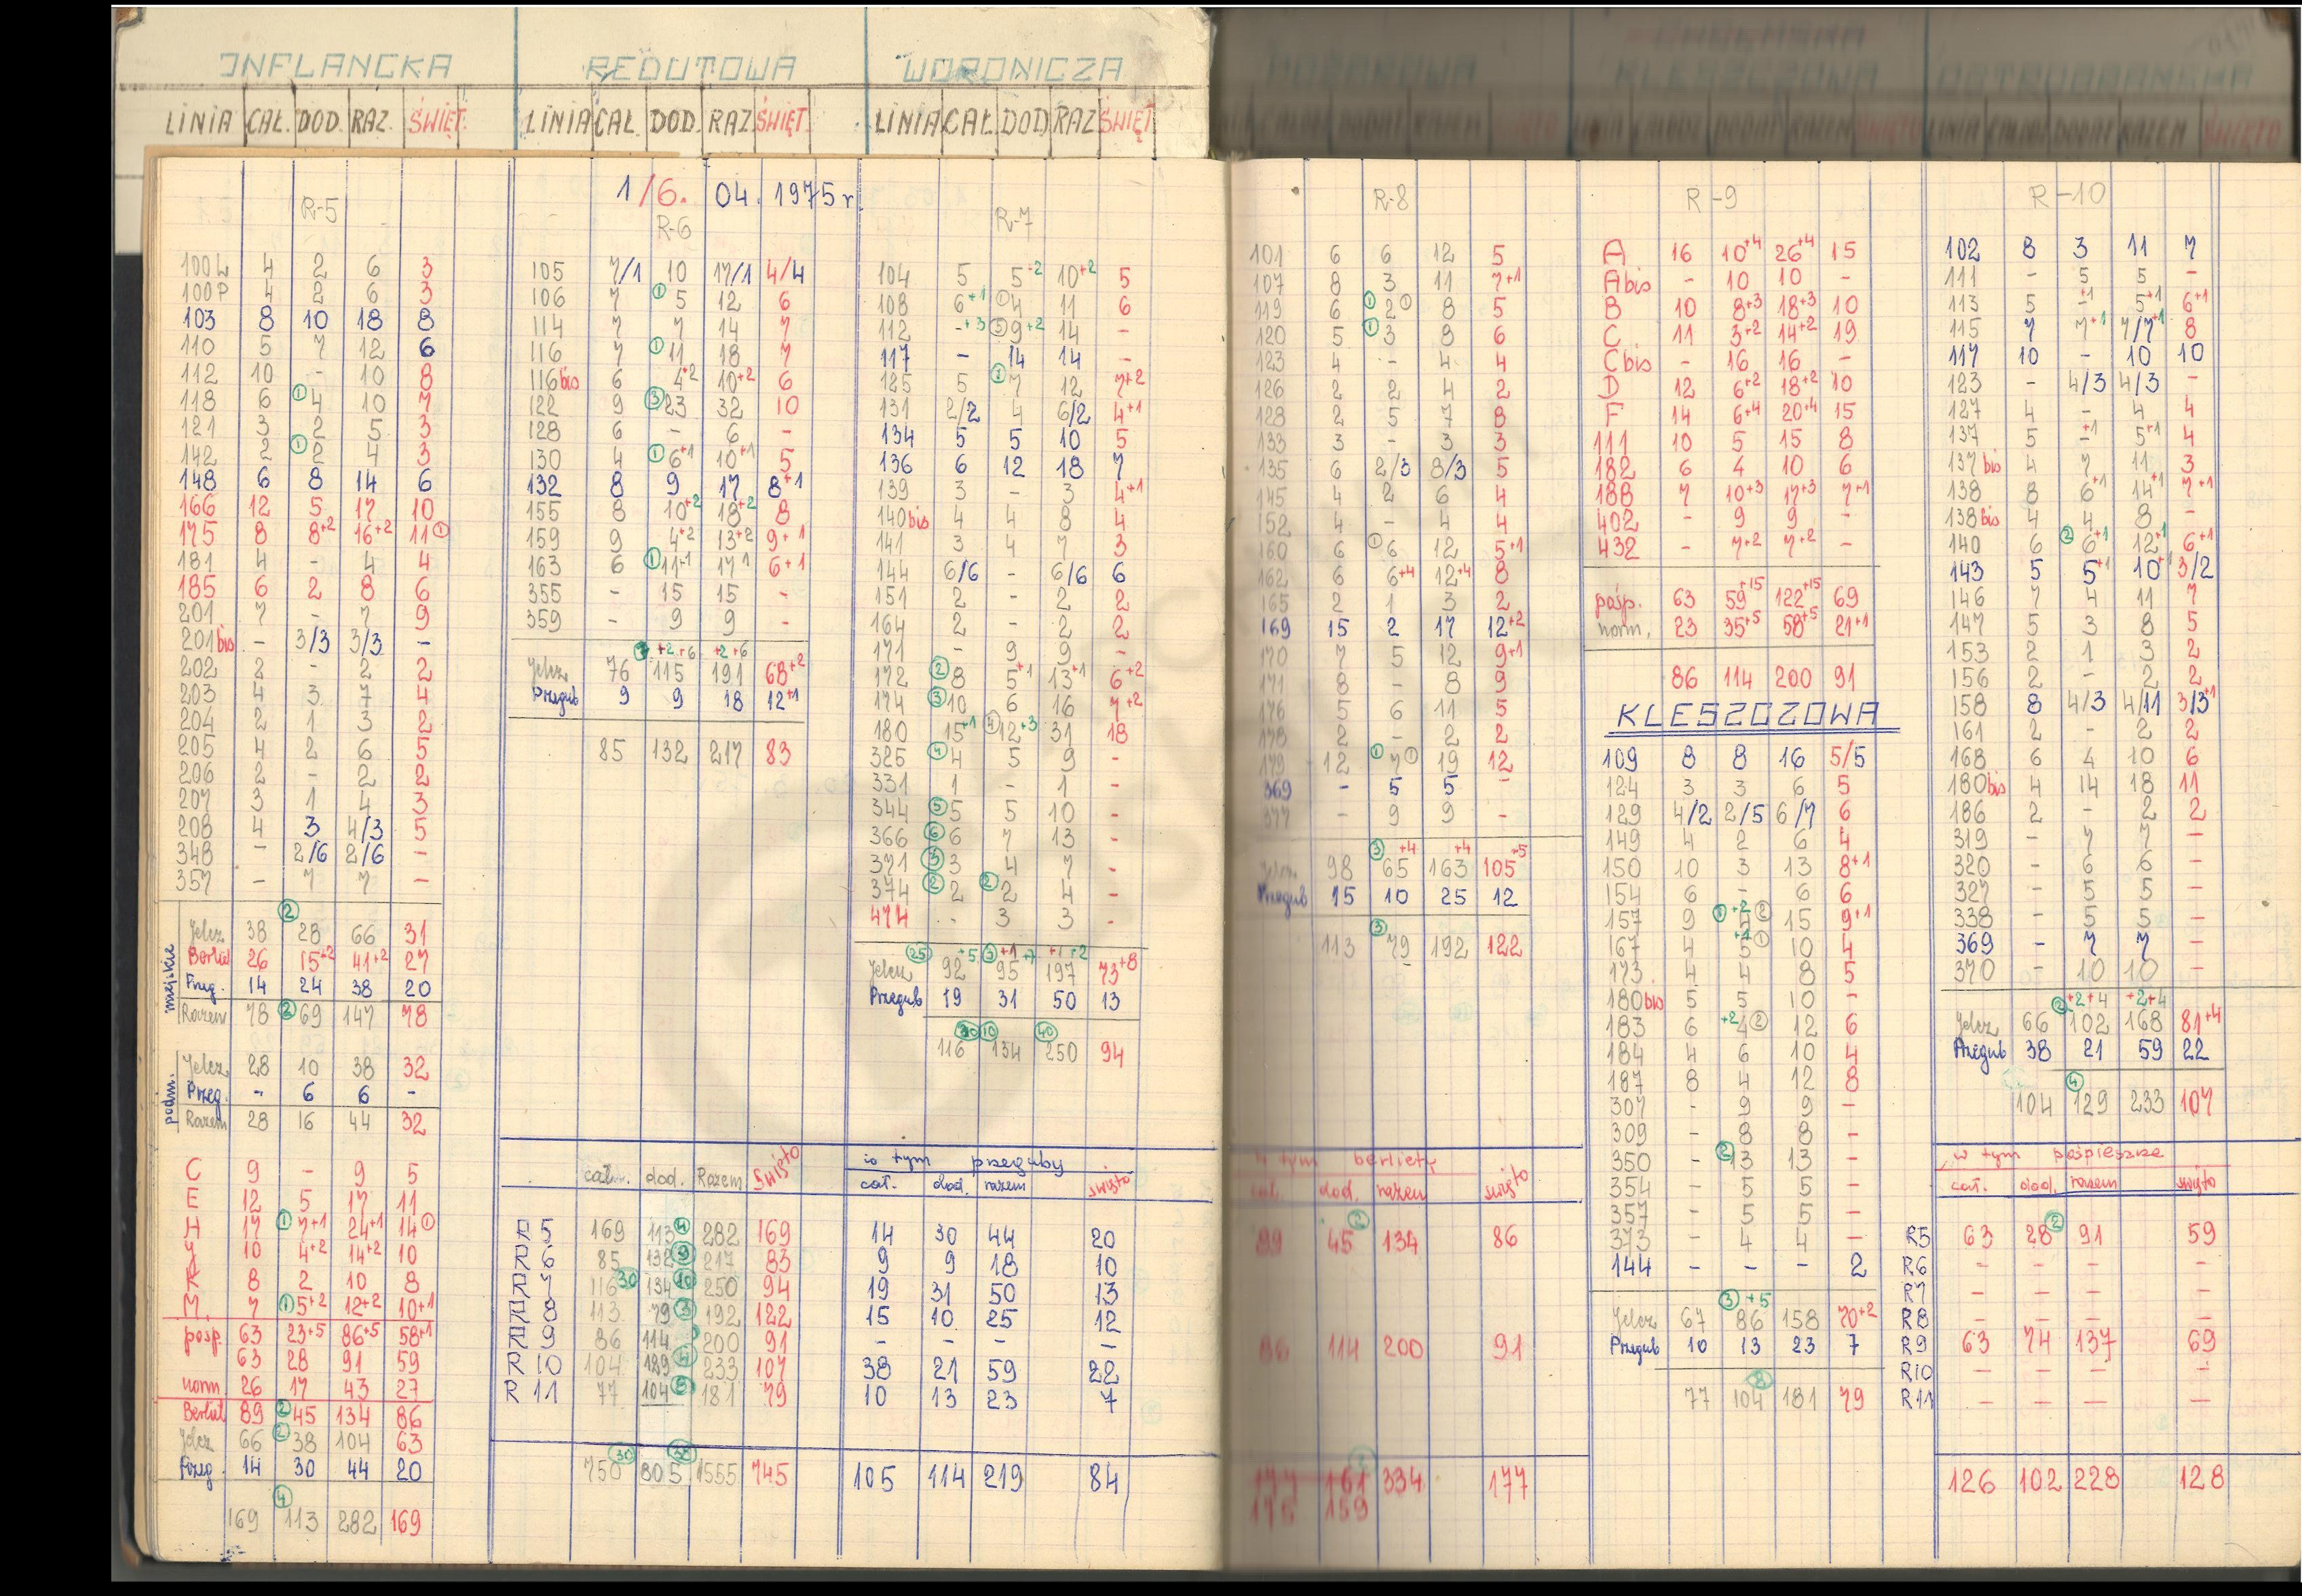 INFLANCKA
LINIA CAŁ. DOD. RAZ. ŚWIĘT.
R-5
100L 4 2 6 3
100P 4 2 6 3
103 8 10 18 8
110 5 7 12 6
112 10 - 10 8
118 6 ①4 10 7
121 3 2 5 3
142 2 ①2 4 3
148 6 8 14 6
166 12 5 17 10
175 8 8+2 16+2 11①
181 4 - 4 4
185 6 2 8 6
201 7 - 7 9
201bis - 3/3 3/3 -
202 2 - 2 2
203 4 3 7 4
204 2 1 3 2
205 4 2 6 5
206 2 - 2 2
207 3 1 4 3
208 4 3 4/3 5
348 - 2/6 2/6 -
357 - 7 7 -
②
miejskie
Jelcz 38 28 66 31
Berliet 26 15+2 41+2 27
Przeg. 14 24 38 20
Razem 78 ②69 147 78
podm.
Jelcz 28 10 38 32
Przeg. - 6 6 -
Razem 28 16 44 32
C 9 - 9 5
E 12 5 17 11
H 17 ①7+1 24+1 14①
J 10 4+2 14+2 10
K 8 2 10 8
M. 7 ①5+2 12+2 10+1
posp. 63 23+5 86+5 58+1
63 28 91 59
norm 26 17 43 27
Berliet 89 ②45 134 86
Jelcz 66 ②38 104 63
Przeg. 14 30 44 20
④
169 113 282 169
REDUTOWA
LINIA CAŁ. DOD. RAZ ŚWIĘT
1/6. 04. 1975 r
R-6
105 7/1 10 17/1 4/4
106 7 ①5 12 6
114 7 7 14 7
116 7 ①11 18 7
116bis 6 4+2 10+2 6
122 9 ③23 32 10
128 6 - 6 -
130 4 ①6+1 10+1 5
132 8 9 17 8+1
155 8 10+2 18+2 8
159 9 4+2 13+2 9+1
163 6 ①11+1 17+1 6+1
355 - 15 15 -
359 - 9 9 -
+2+6 +2+6
Jelcz 76 115 191 68+2
Przegub 9 9 18 12+1
85 132 217 83
WORONICZA
LINIA CAŁ DOD RAZ ŚWIĘT
R-7
104 5 5+2 10+2 5
108 6+1 ①4 11 6
112 -+3 ⑤9+2 14 -
117 - 14 14 -
125 5 ①7 12 7+2
131 2/2 4 6/2 4+1
134 5 5 10 5
136 6 12 18 7
139 3 - 3 4+1
140bis 4 4 8 4
141 3 4 7 3
144 6/6 - 6/6 6
151 2 - 2 2
164 2 - 2 2
171 - 9 9 -
172 ②8 5+1 13+1 6+2
174 ③10 6 16 7+2
180 15+1 ④12+3 31 18
325 ④4 5 9 -
331 1 - 1 -
344 ⑤5 5 10 -
366 ⑥6 7 13 -
371 ③3 4 7 -
374 ②2 ②2 4 -
474 - 3 3 -
㉕ +5 ③+1+7 +1+2
Jelcz 92 95 197 73+8
Przegub 19 31 50 13
㉚ ⑩ ㊵
116 134 250 94
cał. dod. Razem Święto
R 5 169 113④ 282 169
R 6 85 132⑨ 217 83
R 7 116㉚ 134⑩ 250 94
R 8 113 79③ 192 122
R 9 86 114 200 91
R 10 104 129④ 233 107
R 11 77 104⑧ 181 79
㉚ ㊳
750 805 1555 745
w tym przeguby
cał. dod. razem święto
14 30 44 20
9 9 18 10
19 31 50 13
15 10 25 12
- - - -
38 21 59 22
10 13 23 7
105 114 219 84
R-8
101 6 6 12 5
107 8 3 11 7+1
119 6 ①2① 8 5
120 5 ①3 8 6
123 4 - 4 4
126 2 2 4 2
128 2 5 7 8
133 3 - 3 3
135 6 2/3 8/3 5
145 4 2 6 4
152 4 - 4 4
160 6 ①6 12 5+1
162 6 6+4 12+4 8
165 2 1 3 2
169 15 2 17 12+2
170 7 5 12 9+1
171 8 - 8 9
176 5 6 11 5
178 2 - 2 2
179 12 ①7① 19 12
369 - 5 5 -
377 - 9 9 -
③+4 +4 +5
Jelcz 98 65 163 105
Przegub 15 10 25 12
③
113 79 192 122
w tym berliety
cał. dod. razem święto
②
89 45 134 86
86 114 200 91
177 161 334 177
175 159
R-9
A 16 10+4 26+4 15
Abis - 10 10 -
B 10 8+3 18+3 10
C 11 3+2 14+2 19
Cbis - 16 16 -
D 12 6+2 18+2 10
F 14 6+4 20+4 15
111 10 5 15 8
182 6 4 10 6
188 7 10+3 17+3 7+1
402 - 9 9 -
432 - 7+2 7+2 -
pośp. 63 59+15 122+15 69
norm. 23 35+5 58+5 21+1
86 114 200 91
KLESZCZOWA
109 8 8 16 5/5
124 3 3 6 5
129 4/2 2/5 6/7 6
149 4 2 6 4
150 10 3 13 8+1
154 6 - 6 6
157 9 ①+2 4② 15 9+1
167 4 +1 5① 10 4
173 4 4 8 5
180bis 5 5 10 -
183 6 +2 4② 12 6
184 4 6 10 4
187 8 4 12 8
307 - 9 9 -
309 - 8 8 -
350 - ②13 13 -
354 - 5 5 -
357 - 5 5 -
373 - 4 4 -
144 - - - 2
③+5
Jelcz 67 86 158 70+2
Przegub 10 13 23 7
⑧
77 104 181 79
R-10
102 8 3 11 7
111 - 5 5 -
113 5 -+1 5+1 6+1
115 7 7+1 7/7+1 8
117 10 - 10 10
123 - 4/3 4/3 -
127 4 - 4 4
137 5 -+1 5+1 4
137bis 4 7 11 3
138 8 6+1 14+1 7+1
138bis 4 4 8 -
140 6 ②6+1 12+1 6+1
143 5 5+1 10+1 3/2
146 7 4 11 7
147 5 3 8 5
153 2 1 3 2
156 2 - 2 2
158 8 4/3 4/11 3/3+1
161 2 - 2 2
168 6 4 10 6
180bis 4 14 18 11
186 2 - 2 2
319 - 7 7 -
320 - 6 6 -
327 - 5 5 -
338 - 5 5 -
369 - 7 7 -
370 - 10 10 -
②+2+4 +2+4
Jelcz 66 102 168 81+4
Przegub 38 21 59 22
④
104 129 233 107
w tym pośpieszne
cał. dod. razem święto
R5 63 28② 91 59
R6 - - - -
R7 - - - -
R8 - - - -
R9 63 74 137 69
R10 - - - -
R11 - - - -
126 102 228 128